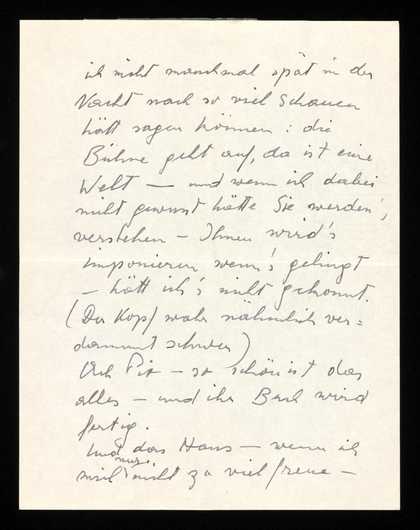 ich nicht manchmal spät in der
Nacht nach so viel Schauen
hätt sagen können: die
Bühne geht auf, da ist eine
Welt — und wenn ich dabei
nicht gewusst hätte Sie werden's
verstehen — Ihnen wird's
imponieren wenn's gelingt
— hätt ich's nicht gekonnt.
(Der Kopf wahr nähmlich ver=
dammt schwer)
Ach — so schön ist das
alles — und ihr Buch wird
fertig.
Und das Haus — wenn ich
mich nur nicht zu viel freue —